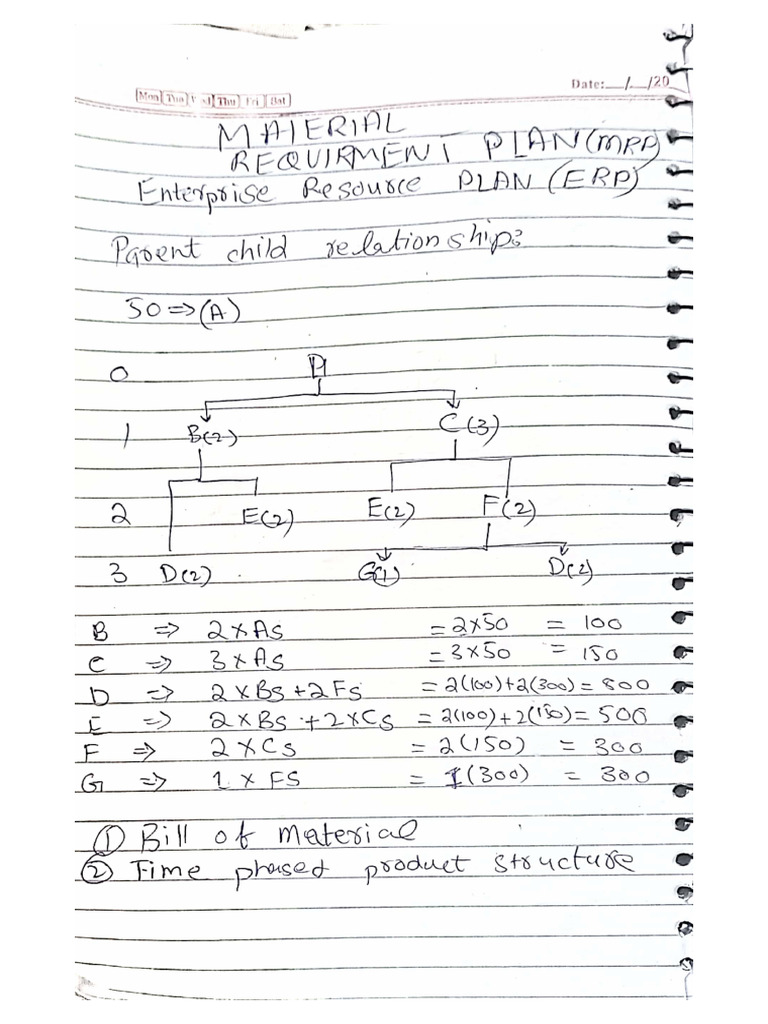 Date:__/__/20
Mon Tue Wed Thu Fri Sat
MATERIAL
REQUIRMENT PLAN (MRP)
Enterprise Resource PLAN (ERP)
Parent child relationship:
50 => (A)
0 A
1 B(2) C(3)
2 E(2) E(2) F(2)
3 D(2) G(1) D(2)
B => 2 x As = 2x50 = 100
C => 3 x As = 3x50 = 150
D => 2 x Bs + 2 Fs = 2(100)+2(300) = 800
E => 2 x Bs + 2 x Cs = 2(100)+2(150) = 500
F => 2 x Cs = 2(150) = 300
G => 1 x FS = 1(300) = 300
① Bill of material
② Time phased product structure